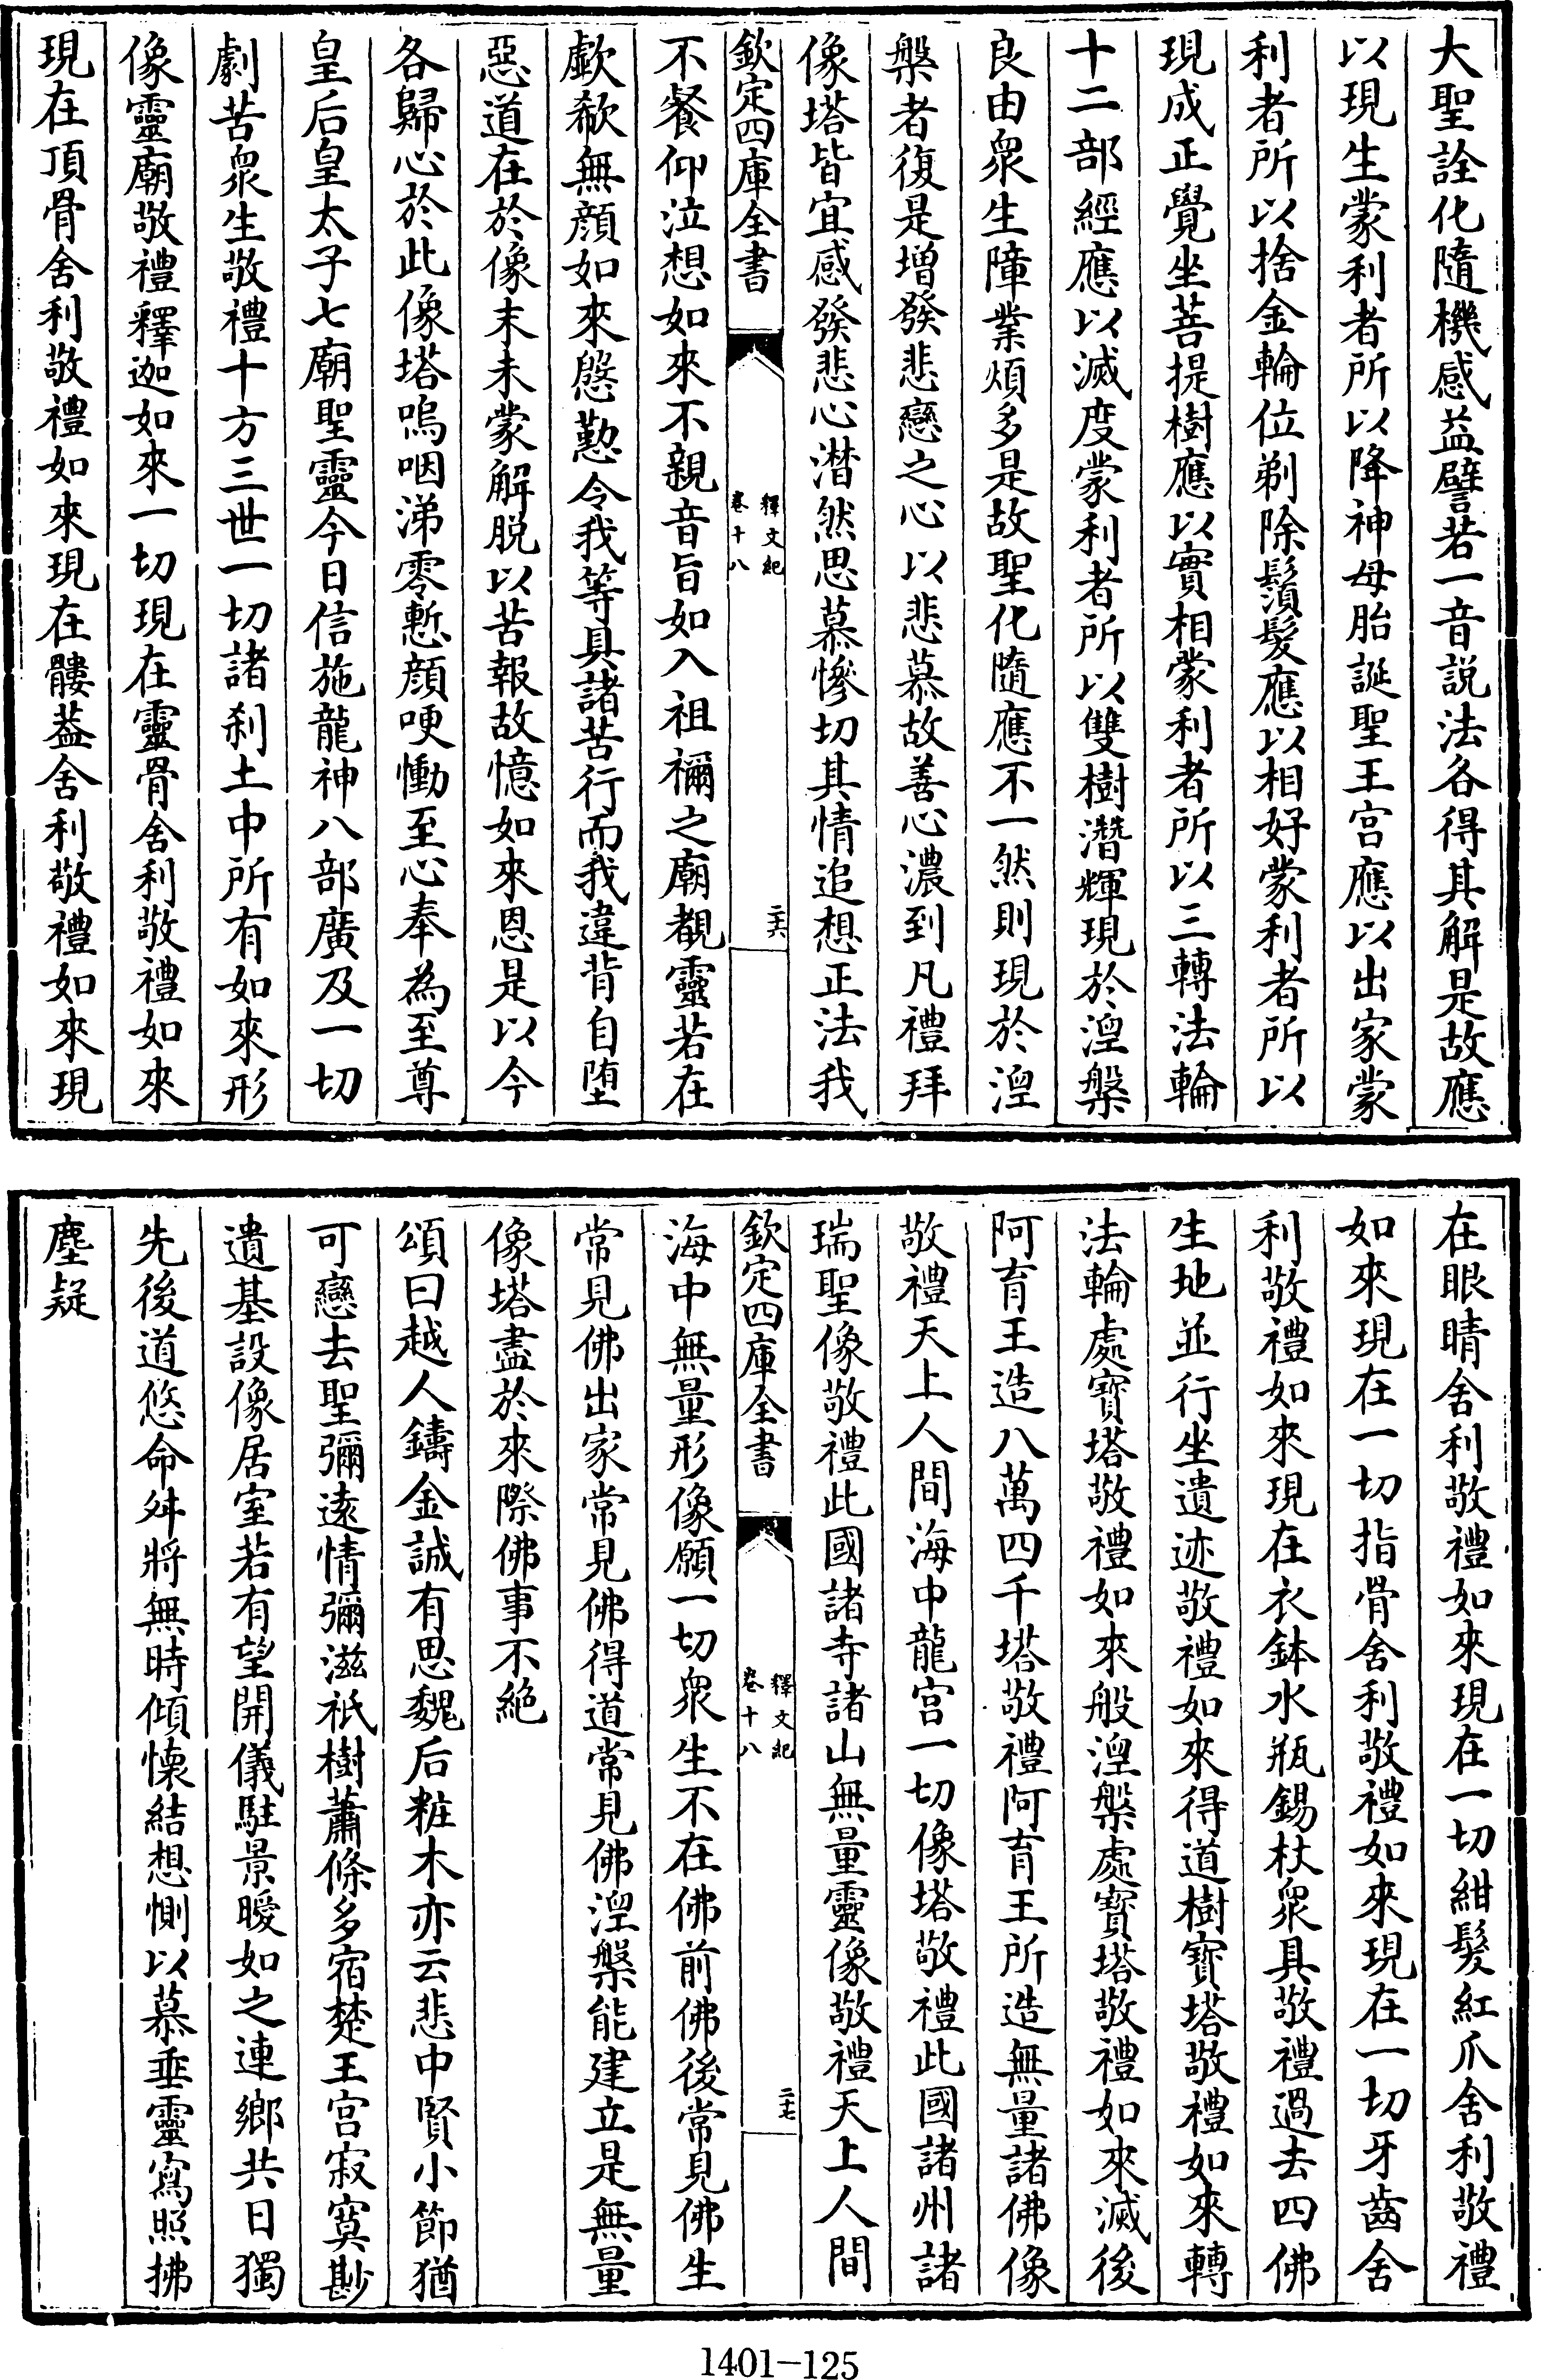 大聖詮化隨機感益譬若一音説法各得其解是故應
以現生蒙利者所以降神母胎誕聖王宫應以出家蒙
利者所以捨金輪位剃除鬚髮應以相好蒙利者所以
現成正覺坐菩提樹應以實相蒙利者所以三轉法輪
十二部經應以滅度蒙利者所以雙樹潛輝現於湼槃
良由衆生障業煩多是故聖化隨應不一然則現於湼
槃者復是增發悲戀之心以悲慕故善心濃到凡禮拜
像塔皆宜感發悲心潛然思慕慘切其情追想正法我
欽定四庫全書
釋文紀
卷十八
二六
不餐仰泣想如來不親音旨如入祖禰之廟覩靈若在
歔欷無顔如來慇懃令我等具諸苦行而我違背自墮
惡道在於像末未蒙解脱以苦報故憶如來恩是以今
各歸心於此像塔嗚咽涕零慙顔哽慟至心奉為至尊
皇后皇太子七廟聖靈今日信施龍神八部廣及一切
劇苦衆生敬禮十方三世一切諸刹土中所有如來形
像靈廟敬禮釋迦如來一切現在靈骨舍利敬禮如來
現在頂骨舍利敬禮如來現在髏葢舍利敬禮如來現
在眼睛舍利敬禮如來現在一切紺髮紅爪舍利敬禮
如來現在一切指骨舍利敬禮如來現在一切牙齒舍
利敬禮如來現在衣鉢水瓶錫杖衆具敬禮過去四佛
生地並行坐遺迹敬禮如來得道樹寳塔敬禮如來轉
法輪處寳塔敬禮如來般湼槃處寳塔敬禮如來滅後
阿育王造八萬四千塔敬禮阿育王所造無量諸佛像
敬禮天上人間海中龍宫一切像塔敬禮此國諸州諸
瑞聖像敬禮此國諸寺諸山無量靈像敬禮天上人間
欽定四庫全書
釋文紀
卷十八
二七
海中無量形像願一切衆生不在佛前佛後常見佛生
常見佛出家常見佛得道常見佛湼槃能建立是無量
像塔盡於來際佛事不絶
頌曰越人鑄金誠有思魏后粧木亦云悲中賢小節猶
可戀去聖彌逺情彌滋祇樹蕭條多宿楚王宫寂寞尠
遺基設像居室若有望開儀駐景曖如之連鄉共日獨
先後道悠命舛將無時傾懷結想惻以慕垂靈寫照拂
塵疑
1401-125